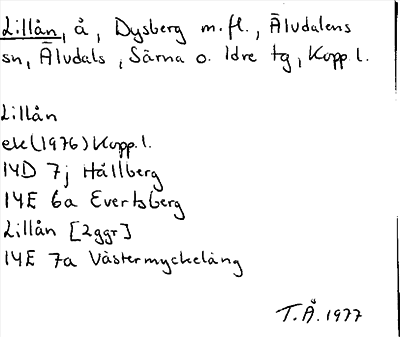 Lillån, å, Dysberg m.fl., Älvdalens
sn, Älvdals, Särna o. Idre tg, Kopp.l.
Lillån
ek(1976)Kopp.l.
14D 7j Hållberg
14E 6a Evertsberg
Lillån [2ggr]
14E 7a Västermyckeläng
T.Å.1977